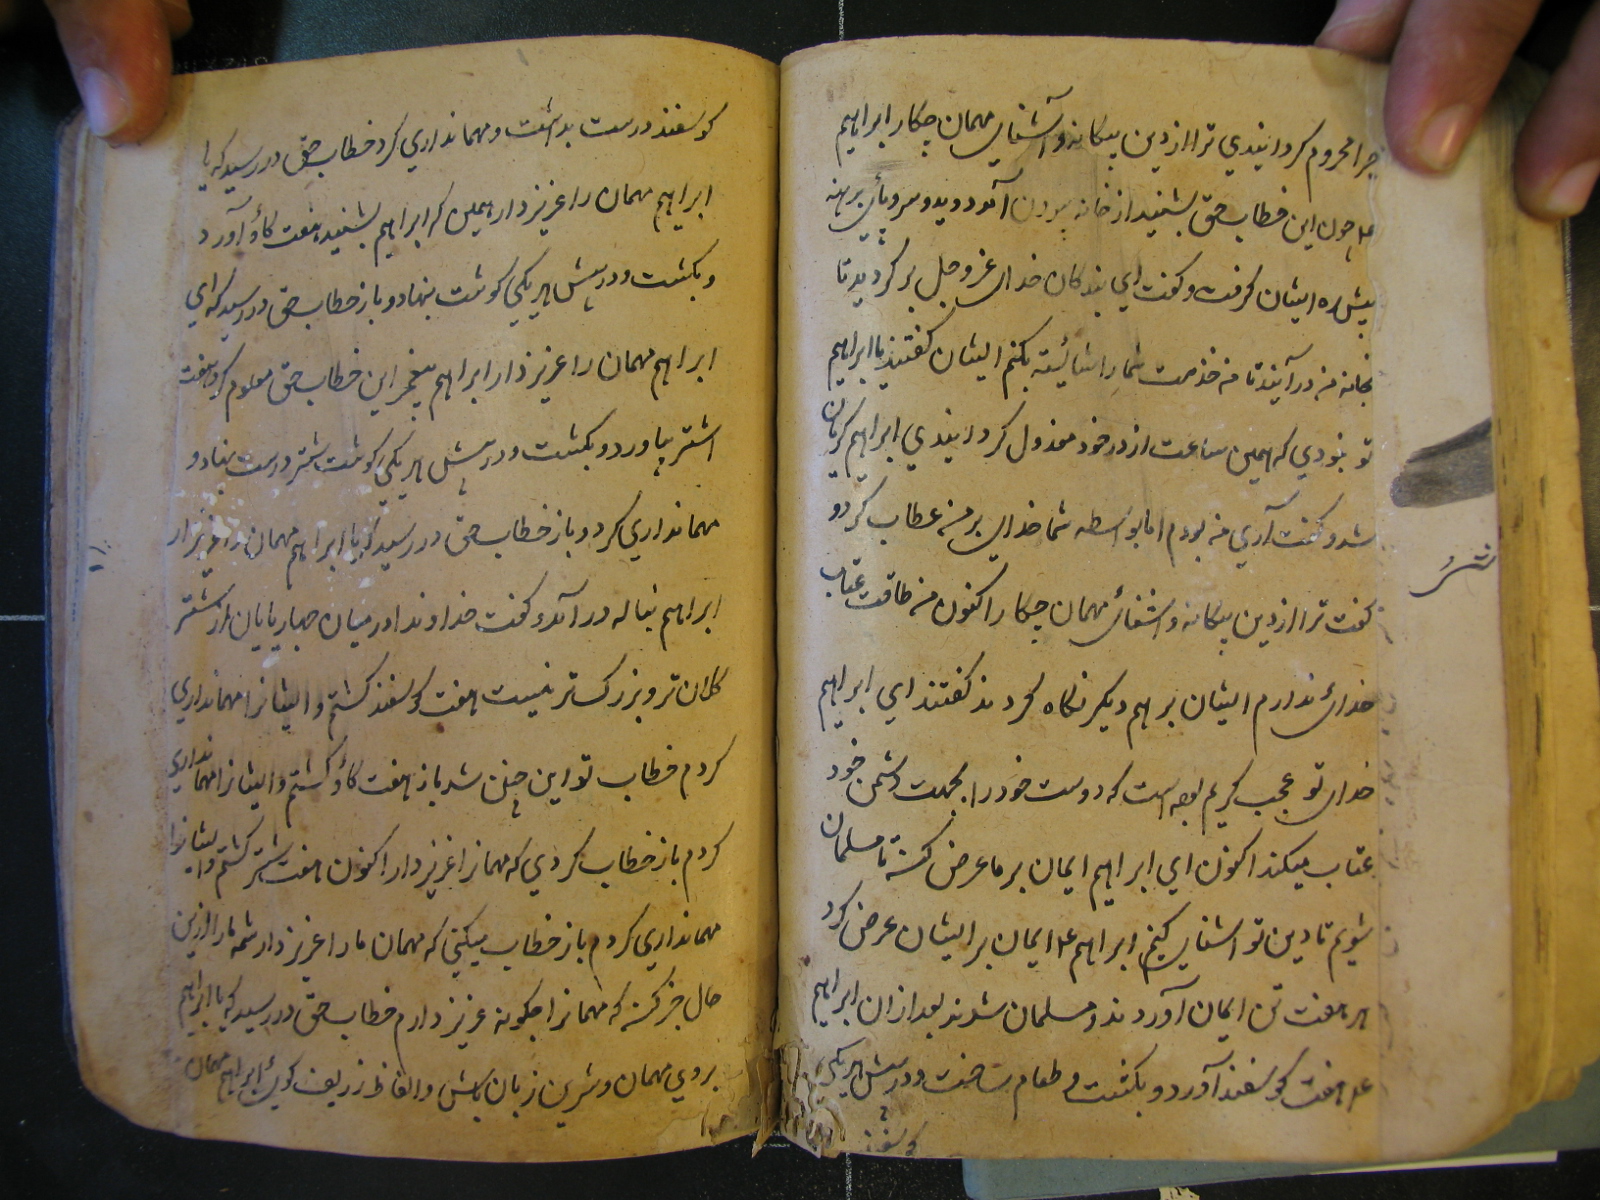 چرا محروم کردانیدی ترا از دین بیکانه و آشنای مهمان چکار ابراهیم
عم چون این خطاب حق بشنید از خانه بیرون آمد دوید و سر و پای برهنه
پیش راه ایشان کرفت و کفت ای بندکان خدای عز و جل بر کردید تا
بخانه من در آیند تا من خدمت شما را شائیسته بکنم ایشان کفتند یا ابراهیم
تو نبودی که همین ساعت از در خود معذول کردانیدی ابراهیم کریان
شد و کفت آری من بودم اما بواسطه شما خدای بر من عطاب کرد و
کفت ترا از دین بیکانه و اشنائ مهمان چکار اکنون من طاقت عتاب
خدائ ندارم ایشان بر هم دیکر نکاه کردند کفتند ای ابراهیم
خدای تو عجب کریم بوده است که دوست خود را بجهت دشمن خود
عتاب میکند اکنون ای ابراهیم ایمان بر ما عرض کن تا مسلمان
شویم تا دین تو اشنای کنیم ابراهیم عم ایمان بر ایشان عرض کرد
هر هفت تن ایمان آوردند و مسلمان شدند بعد ازان ابراهیم
عم هفت کوسفند آورد و بکشت و طعام ساخت و در پیش هر یکی
کوسفند
کوسفند درست بداشت و مهمانداری کرد خطاب حق در رسید که یا
ابراهیم مهمان را عزیز دار همین که ابراهیم بشنید هفت کاؤ آورد
و بکشت و در پیش هر یکی کوشت بنهاد و باز خطاب حق در رسید که ای
ابراهیم مهمان را عزیز دار ابراهیم پیغمبر این خطاب حق معلوم کرد هفت
اشتر بیاورد و بکشت و در پیش هر یکی کوشت شتر درست بنهاد و
مهمانداری کرد و باز خطاب حق در رسید که یا ابراهیم مهمان را عزیز دار
ابراهیم بناله در آمد و کفت خداوندا در میان چهارپایان از شتر
کلان تر و بزرکتر نیست هفت کوسفند کشتم و ایشانرا مهمانداری
کردم خطاب تو این چنین شد باز هفت کاؤ کشتم و ایشانرا مهمانداری
کردم باز خطاب کردی که مهمانرا عزیز دار اکنون هفت شتر کشتم و ایشانرا
مهمانداری کردم باز خطاب میکنی که مهمان ما را عزیز دار شمه ما را ازین
حال خبر کن که مهمانرا چکونه عزیز دارم خطاب حق در رسید که یا ابراهیم
بروی مهمان و شرین زبان باش و الفاظ زریف کوئ ابراهیم مهمان